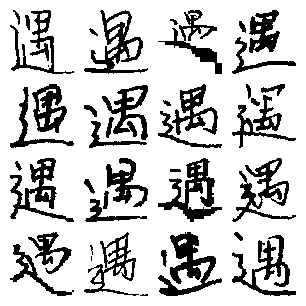 遇遇遇遇
遇遇遇遇
遇遇遇遇
遇遇遇遇